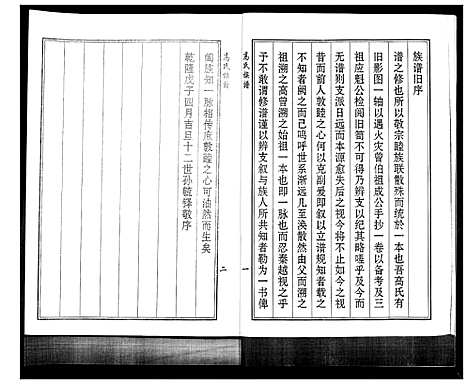 族谱旧序
谱之修也所以敬宗睦族联散殊而统於一本也吾高氏有
旧影图一轴以遇火灾曾伯祖成公手抄一卷以备考及三
祖应魁公检阅旧简不可得乃辨支以纪其略嗟乎及今而
无谱则支派日远而本源愈失后之视今将不犹今之视
昔而前人敦睦之心何以克副爰即叙以立谱规知者载之
不知者阙之而已呜呼世系渐远几至涣散然由父而溯之
祖溯之高曾溯之始祖一本也即一脉也而忍秦越视之乎
予不敢谓修谱谨以辨支叙与族人所共知者勒为一书俾
高氏族谱
一
高氏族谱
二
阖族知一脉相传庶敦睦之心可油然而生矣
乾隆戊子四月吉旦十二世孙毓铎敬序